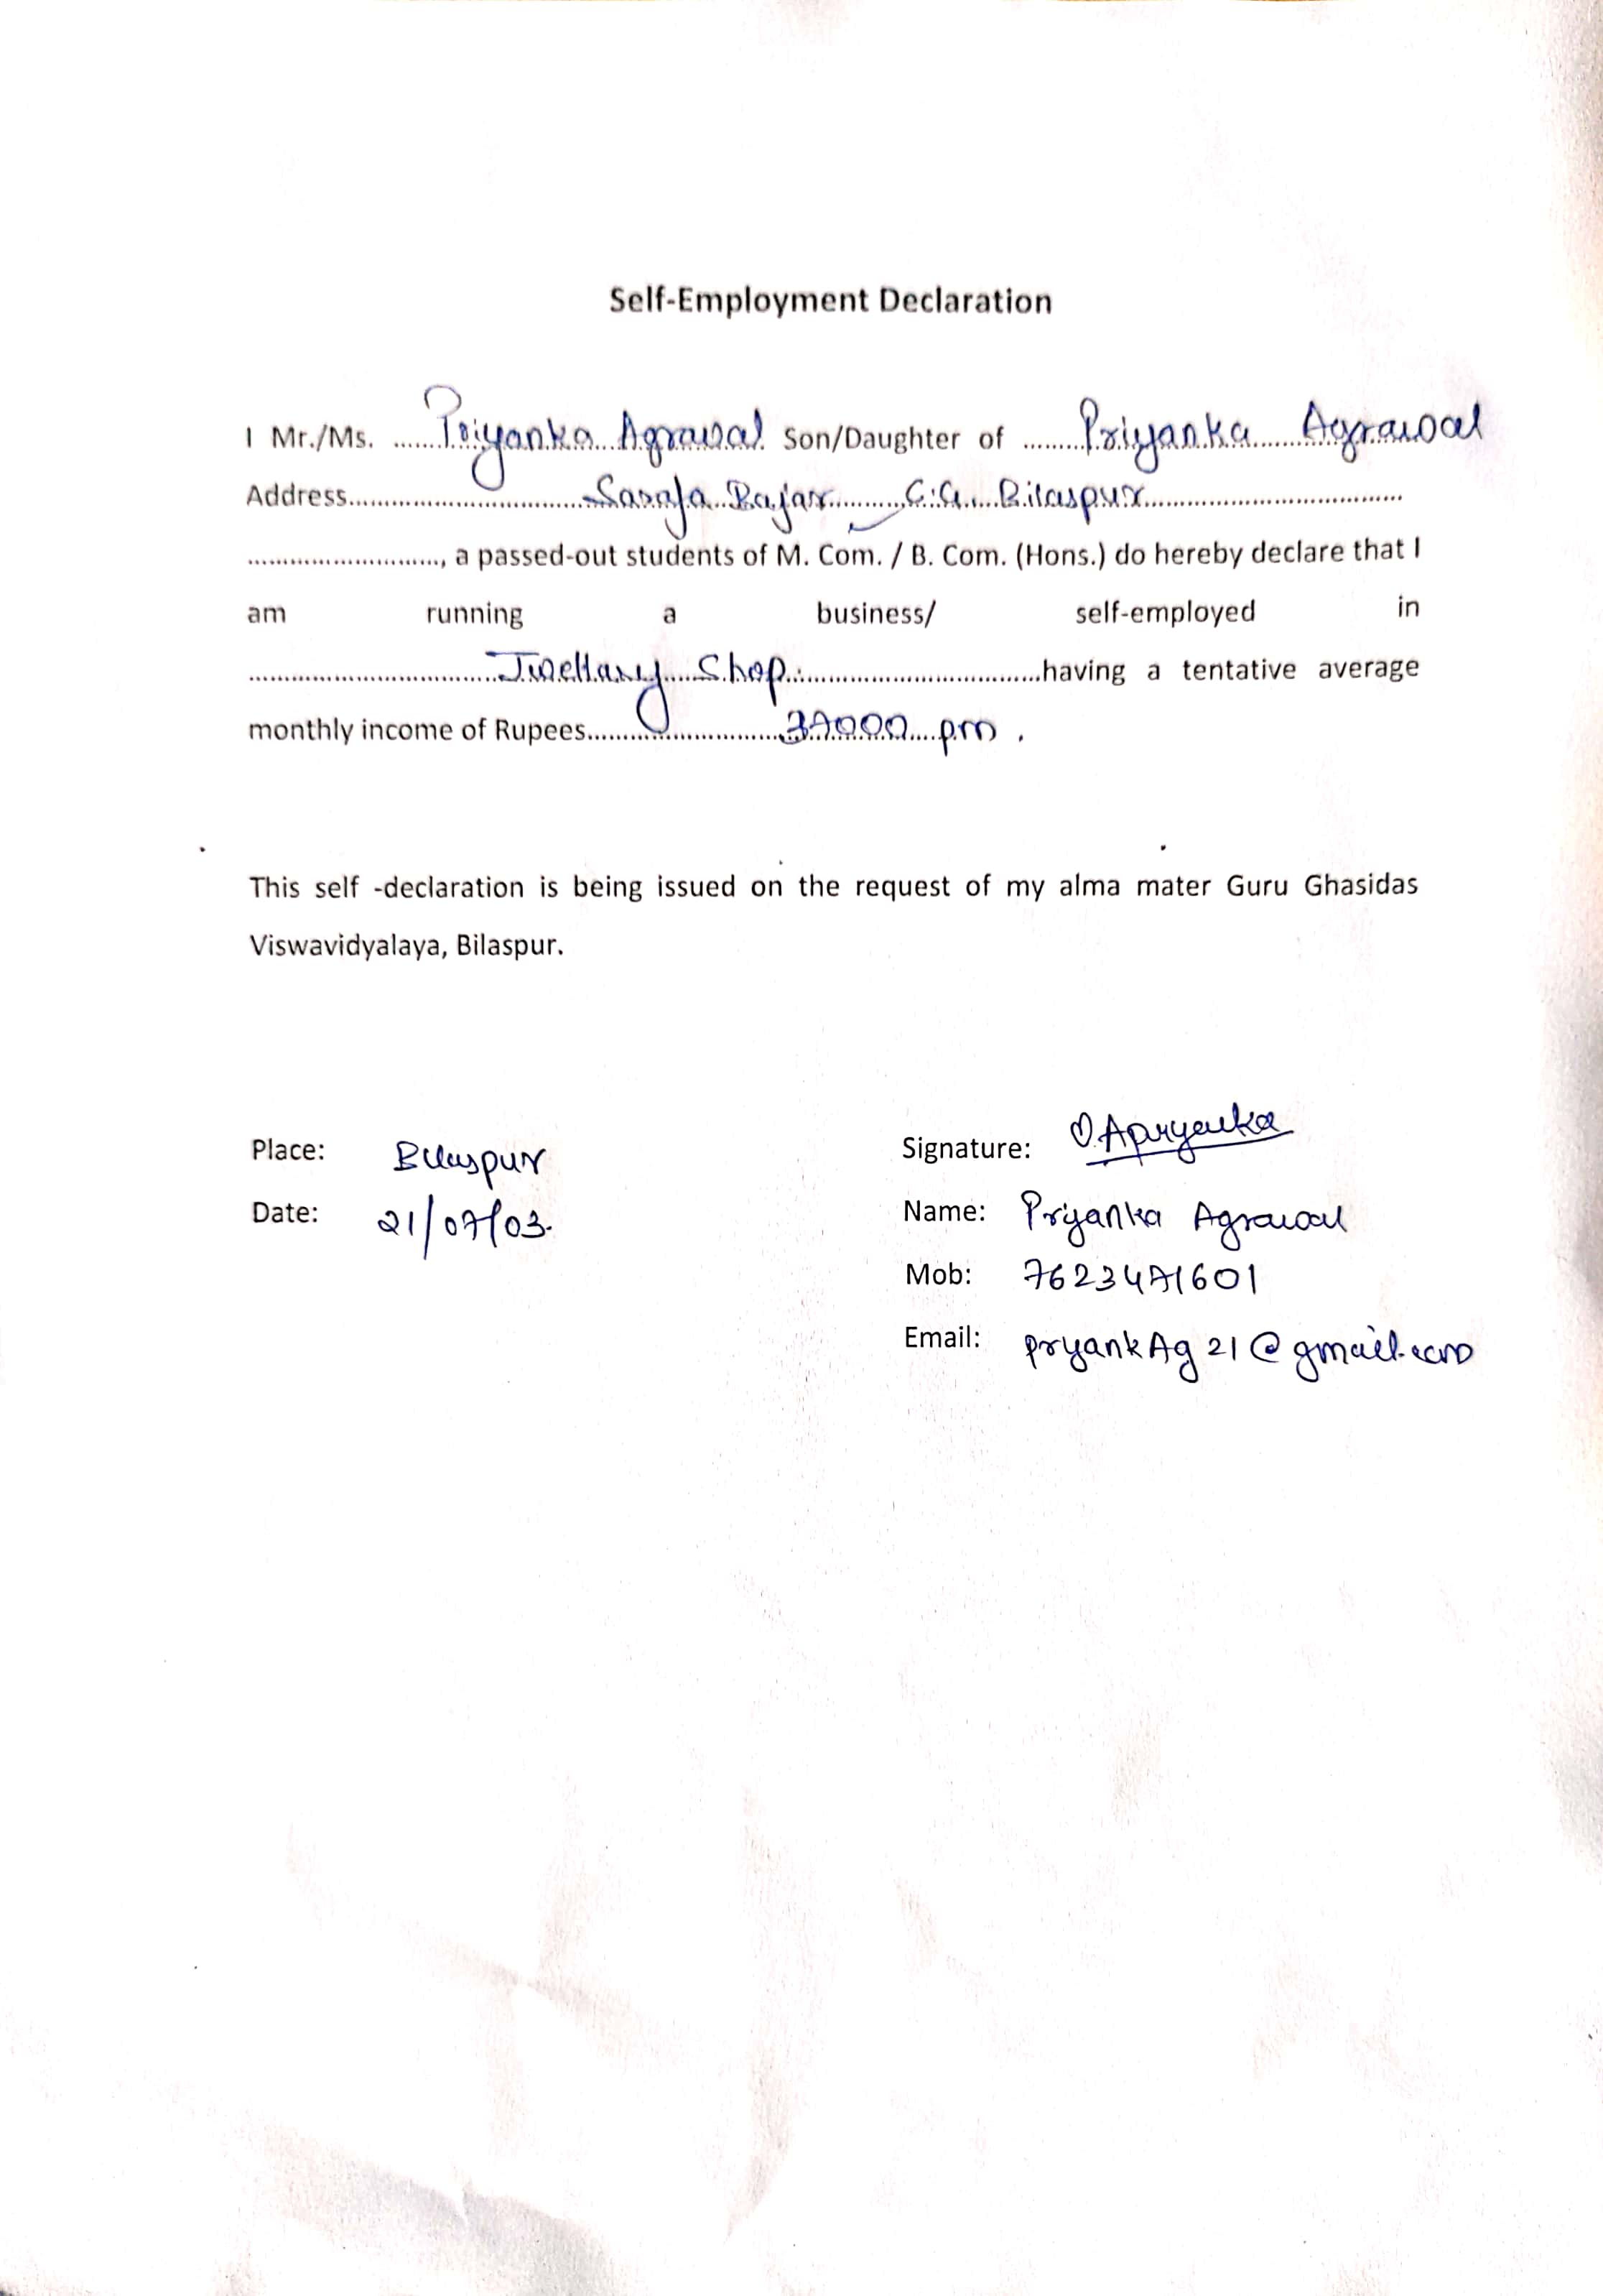 Self-Employment Declaration
I Mr./Ms. ......Priyanka Agrawal Son/Daughter of ........Priyanka Agrawal
Address.................Sarafa Bajar.........C.G....Bilaspur.................
..........................., a passed-out students of M. Com. / B. Com. (Hons.) do hereby declare that I
am running a business/ self-employed in
..................Jwellary Shop..................having a tentative average
monthly income of Rupees..................37000 pm .
This self -declaration is being issued on the request of my alma mater Guru Ghasidas
Viswavidyalaya, Bilaspur.
Place: Bilaspur
Date: 21/07/03.
Signature: Apryanka
Name: Priyanka Agrawal
Mob: 7623471601
Email: pryankAg21@gmail.com